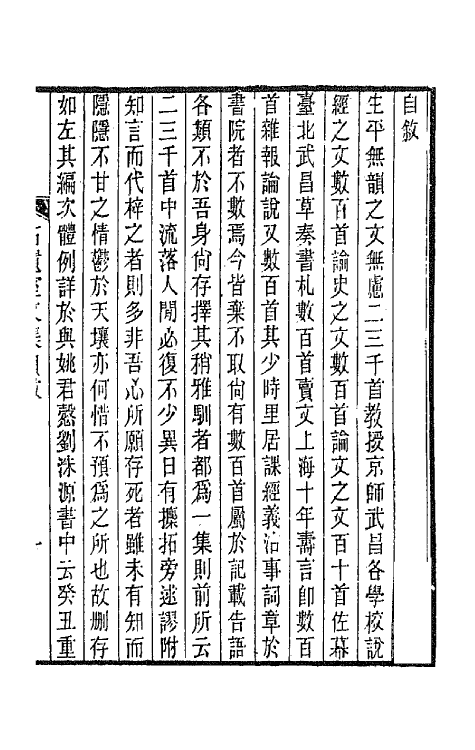 自敘
生平無韻之文無慮二三千首教授京師武昌各學校說
經之文數百首論史之文數百首論文之文百十首佐幕
臺北武昌草奏書札數百首賣文上海十年壽言卽數百
首雜報論說又數百首其少時里居課經義治事詞章於
書院者不數焉今皆棄不取尙有數百首屬於記載告語
各類不於吾身尙存擇其稍雅馴者都爲一集則前所云
二三千首中流落人閒必復不少異日有攈拓旁逑謬附
知言而代梓之者則多非吾心所願存死者雖未有知而
隱隱不甘之情鬱於天壤亦何惜不預爲之所也故删存
如左其編次體例詳於與姚君慤劉洙源書中云癸丑重
石遺室文集自敘
一